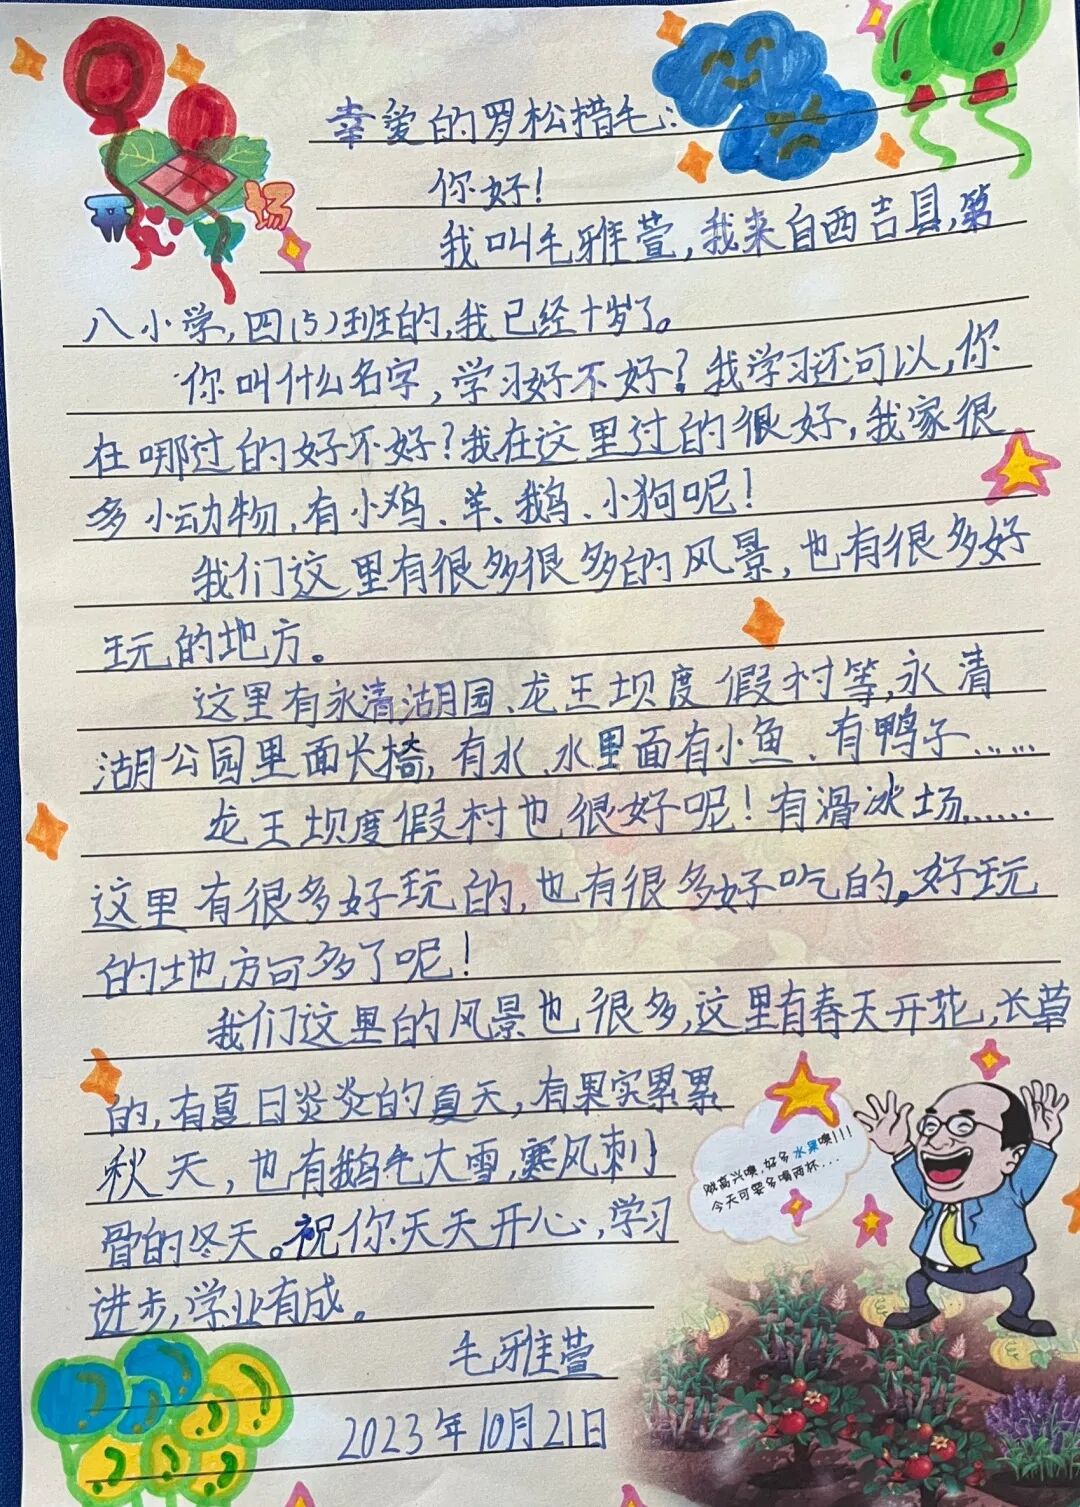 幸爱的罗松措毛:
你好!
我叫毛雅萱,我来自西吉县,第
八小学,四(5)班的,我已经十岁了。
你叫什么名字,学习好不好?我学习还可以,你
在哪过的好不好?我在这里过的很好,我家很
多小动物,有小鸡、羊、鹅、小狗呢!
我们这里有很多很多的风景,也有很多好
玩的地方。
这里有永清湖园、龙王坝度假村等,永清
湖公园里面长椅,有水、水里面有小鱼、有鸭子……
龙王坝度假村也很好呢!有滑冰场……
这里有很多好玩的,也有很多好吃的。好玩
的地方可多了呢!
我们这里的风景也很多,这里有春天开花,长草
的,有夏日炎炎的夏天,有果实累累
秋天,也有鹅毛大雪,寒风刺
骨的冬天。祝你天天开心,学习
进步,学业有成。
毛雅萱
2023年10月21日
开 场
贼高兴噢,好多水果噢!!!
今天可要多喝两杯...